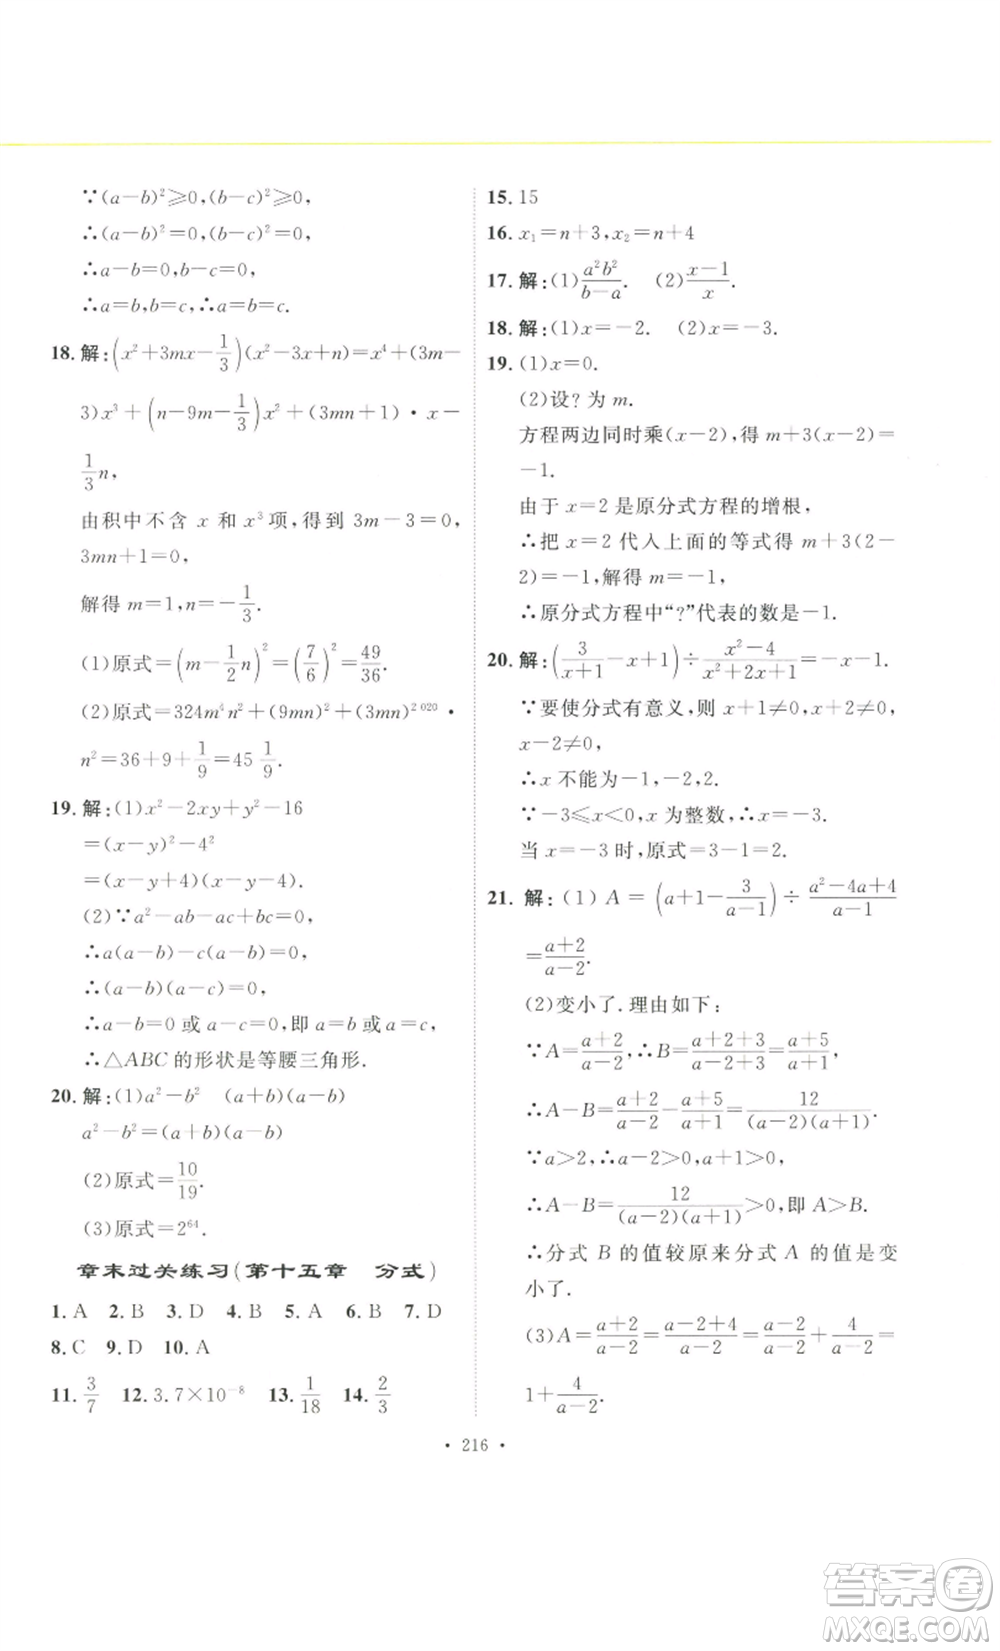 ∵(a－b)²⩾0,(b－c)²⩾0,
∴(a－b)²＝0,(b－c)²＝0,
∴a－b＝0,b－c＝0,
∴a＝b,b＝c,∴a＝b＝c.
18. 解:(x²＋3mx－1/3)(x²－3x＋n)＝x⁴＋(3m－
3)x³＋(n－9m－1/3)x²＋(3mn＋1)·x－
1/3 n,
由积中不含 x 和 x³ 项,得到 3m－3＝0,
3mn＋1＝0,
解得 m＝1,n＝－1/3.
(1)原式＝(m－1/2 n)²＝(7/6)²＝49/36.
(2)原式＝324m⁴n²＋(9mn)²＋(3mn)²⁰²⁰·
n²＝36＋9＋1/9＝45 1/9.
19. 解:(1)x²－2xy＋y²－16
＝(x－y)²－4²
＝(x－y＋4)(x－y－4).
(2)∵a²－ab－ac＋bc＝0,
∴a(a－b)－c(a－b)＝0,
∴(a－b)(a－c)＝0,
∴a－b＝0 或 a－c＝0,即 a＝b 或 a＝c,
∴△ABC 的形状是等腰三角形.
20. 解:(1)a²－b² (a＋b)(a－b)
a²－b²＝(a＋b)(a－b)
(2)原式＝10/19.
(3)原式＝2⁶⁴.
章末过关练习(第十五章 分式)
1. A 2. B 3. D 4. B 5. A 6. B 7. D
8. C 9. D 10. A
11. 3/7 12. 3.7×10⁻⁸ 13. 1/18 14. 2/3
15. 15
16. x₁＝n＋3,x₂＝n＋4
17. 解:(1)a²b²/(b－a). (2)(x－1)/x.
18. 解:(1)x＝－2. (2)x＝－3.
19. (1)x＝0.
(2)设? 为 m.
方程两边同时乘(x－2),得 m＋3(x－2)＝
－1.
由于 x＝2 是原分式方程的增根,
∴把 x＝2 代入上面的等式得 m＋3(2－
2)＝－1,解得 m＝－1,
∴原分式方程中“?”代表的数是－1.
20. 解:(3/(x＋1)－x＋1)÷(x²－4)/(x²＋2x＋1)＝－x－1.
∵要使分式有意义,则 x＋1≠0,x＋2≠0,
x－2≠0,
∴x 不能为－1,－2,2.
∵－3⩽x＜0,x 为整数,∴x＝－3.
当 x＝－3 时,原式＝3－1＝2.
21. 解:(1)A＝(a＋1－3/(a－1))÷(a²－4a＋4)/(a－1)
＝(a＋2)/(a－2).
(2)变小了.理由如下:
∵A＝(a＋2)/(a－2),∴B＝(a＋2＋3)/(a－2＋3)＝(a＋5)/(a＋1),
∴A－B＝(a＋2)/(a－2)－(a＋5)/(a＋1)＝12/((a－2)(a＋1)).
∵a＞2,∴a－2＞0,a＋1＞0,
∴A－B＝12/((a－2)(a＋1))＞0,即 A＞B.
∴分式 B 的值较原来分式 A 的值是变
小了.
(3)A＝(a＋2)/(a－2)＝(a－2＋4)/(a－2)＝(a－2)/(a－2)＋4/(a－2)＝
1＋4/(a－2).
· 216 ·
答案圈
MXQE.COM